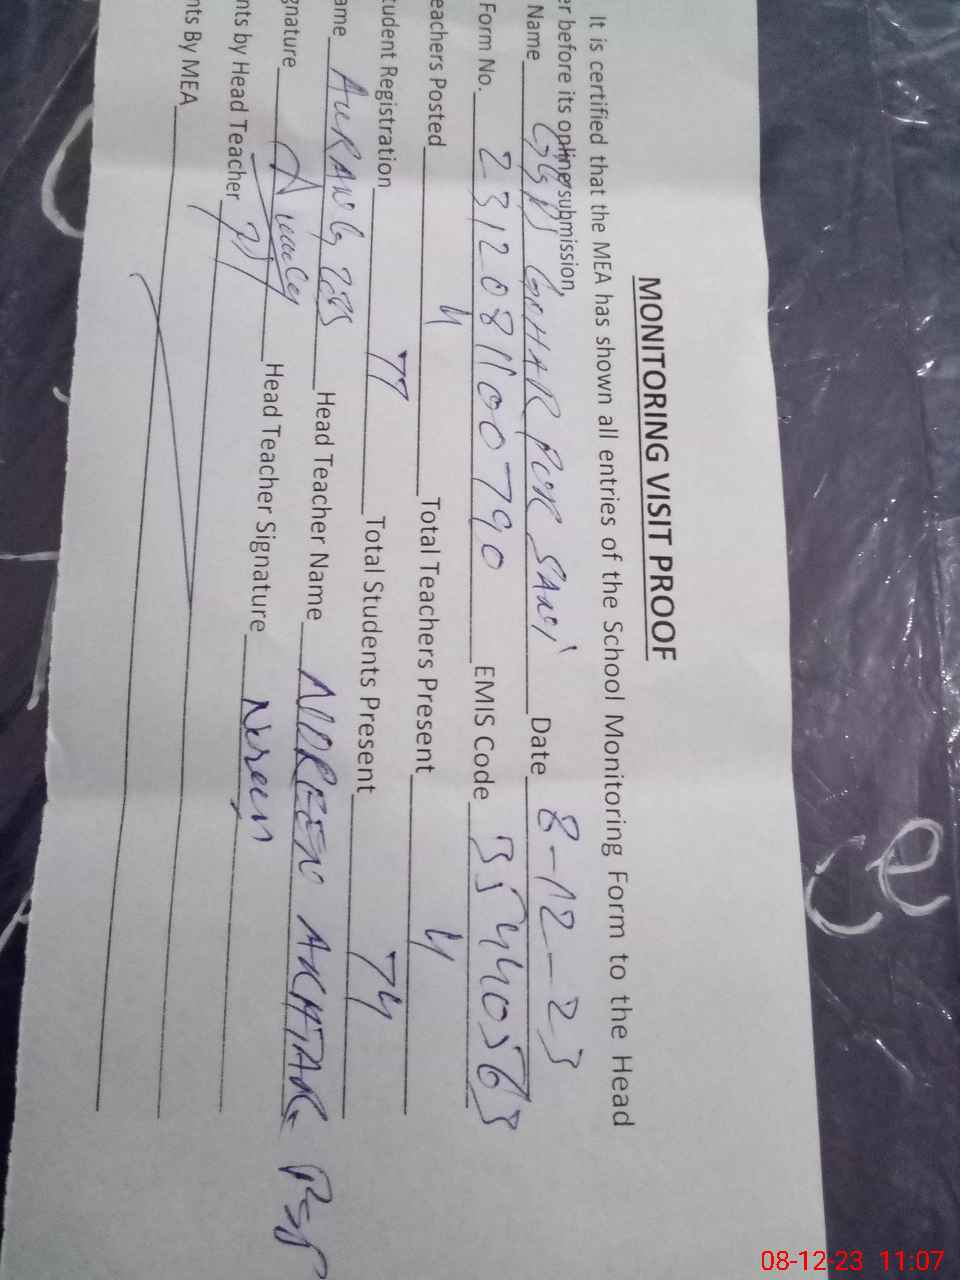 MONITORING VISIT PROOF
It is certified that the MEA has shown all entries of the School Monitoring Form to the Head
er before its online submission.
Name GGPS GOHAR PUR SANI Date 8-12-23
Form No. 2312081100790 EMIS Code 35440563
eachers Posted 4 Total Teachers Present 4
tudent Registration 77 Total Students Present 74
ame AURANG ZEB Head Teacher Name NOREEN AKHTAR PST
gnature Head Teacher Signature Noreen
nts by Head Teacher
nts By MEA
08-12-23 11:07